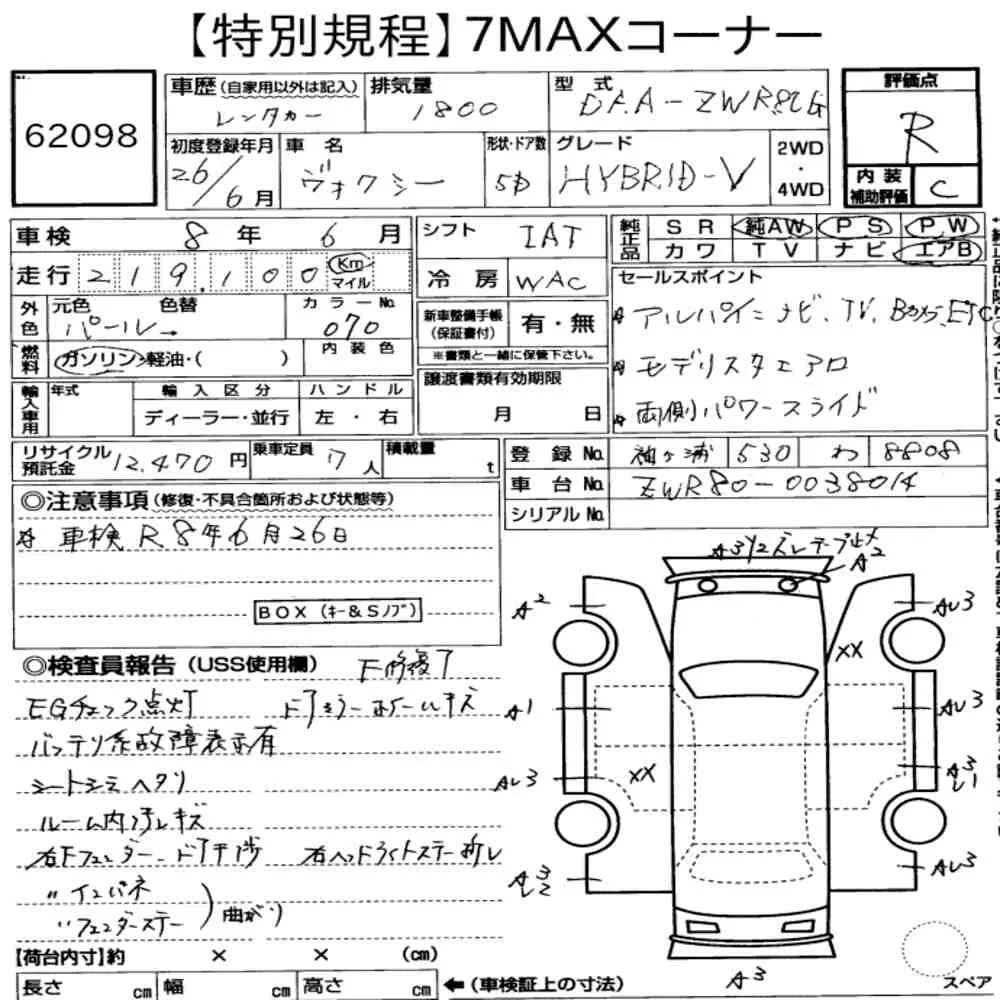 【特別規程】7MAXコーナー
62098
車歴(自家用以外は記入) レンタカー
排気量 1800
型式 DAA-ZWR80G
評価点 R
初度登録年月 26/6月
車名 ヴォクシー
形状・ドア数 5D
グレード HYBRID-V
2WD・4WD
内装補助評価 C
車検 8年 6月
シフト IAT
純正品 SR 純AW PS PW
カワ TV ナビ エアB
走行 219,100 Km マイル
冷房 WAC
セールスポイント
アルパインナビ、TV、Bカメ、ETC
モデリスタエアロ
両側パワースライド
外色 元色 パール 色替 → カラーNo. 070
新車整備手帳(保証書付) 有・無
※書類と一緒に保管下さい。
燃料 ガソリン・軽油・( ) 内装色
譲渡書類有効期限 月 日
輸入車用 年式 輸入区分 ハンドル
ディーラー・並行 左・右
リサイクル預託金 12,470円
乗車定員 7人
積載量 t
登録No. 袖ヶ浦 530 わ 8808
車台No. ZWR80-0038014
シリアルNo.
◎注意事項(修復・不具合箇所および状態等)
車検 R8年6月26日
BOX(キー&Sノブ)
◎検査員報告(USS使用欄) F修復了
EGチェック点灯 ドアミラー ホイールキズ
バッテリ系故障表示有
シートシミヘタリ
ルーム内汚レキズ
右Fフェンダー、ドア干渉 右ヘッドライトステー折レ
〃インパネ
〃フェンダーステー ) 曲がり
【荷台内寸】約 × × (cm)
長さ cm 幅 cm 高さ cm ←(車検証上の寸法)
A3 Y2 ズレテープ止メ
A2
A2
AU3
XX
A1
AU3
AU3
XX
A3 U1
A3 U2
AU3
A3
スペア